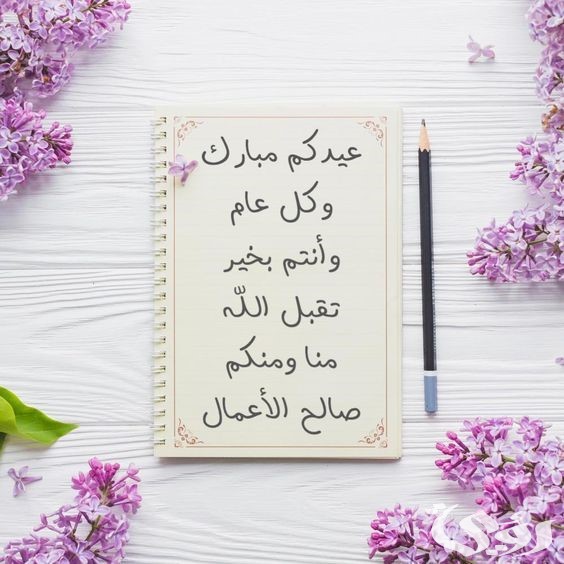 عيدكم مبارك
وكل عام
وأنتم بخير
تقبل الله
منا ومنكم
صالح الأعمال